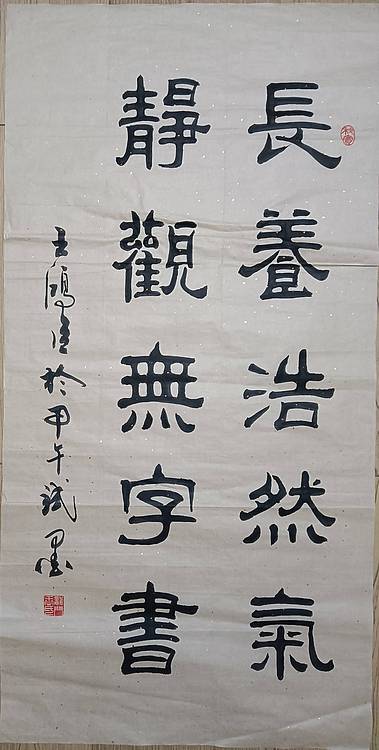 長養浩然氣
靜觀無字書
於甲午試墨